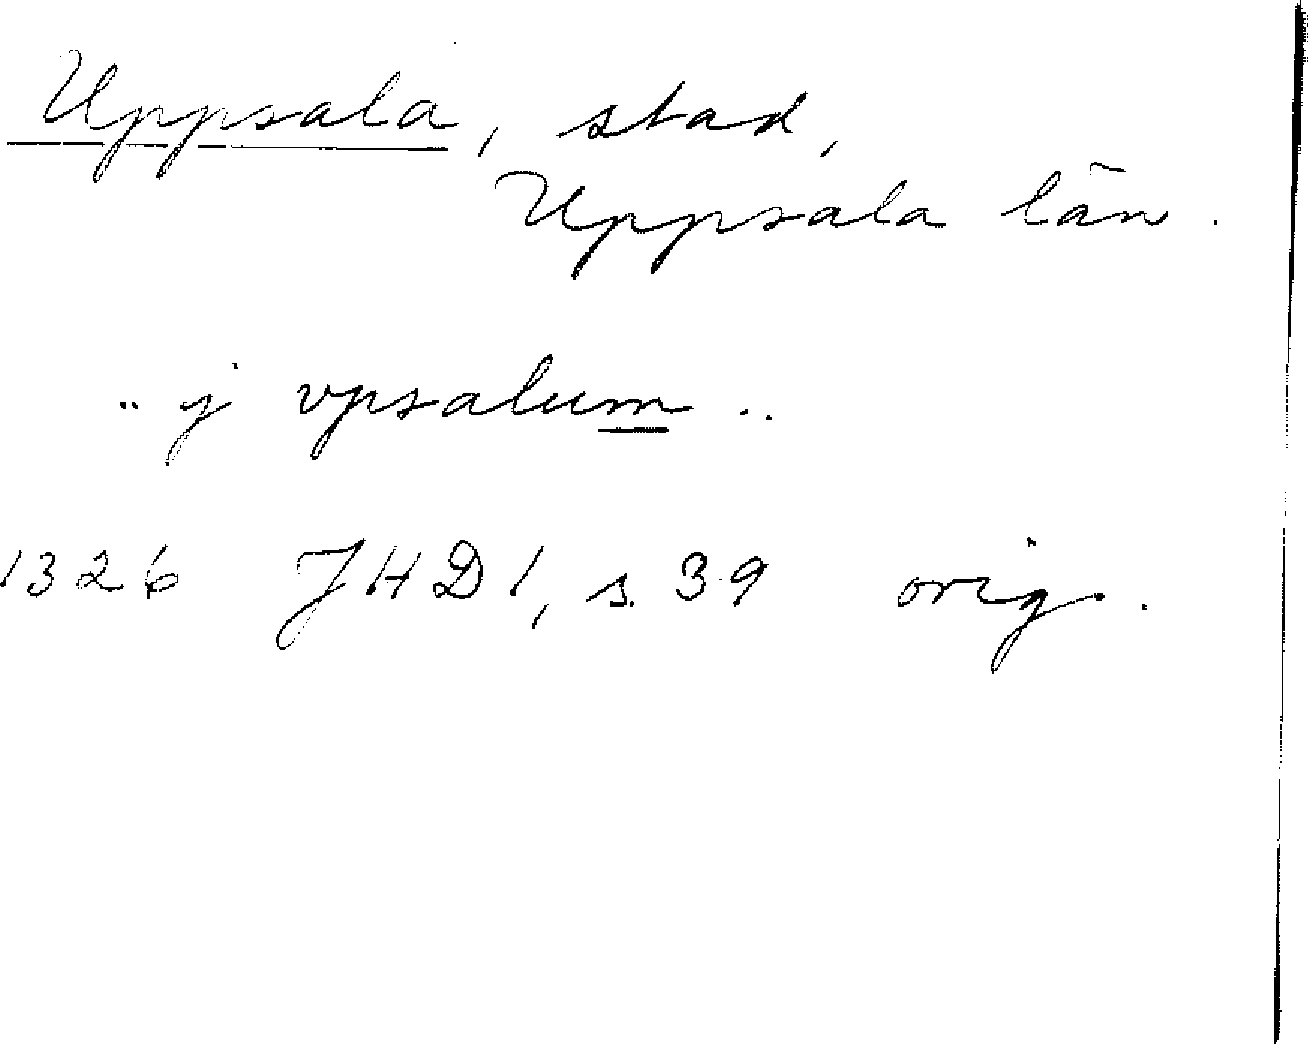 Uppsala, stad,
Uppsala län.
.. j vpsalum ..
1326 JHD 1, s. 39 orig.